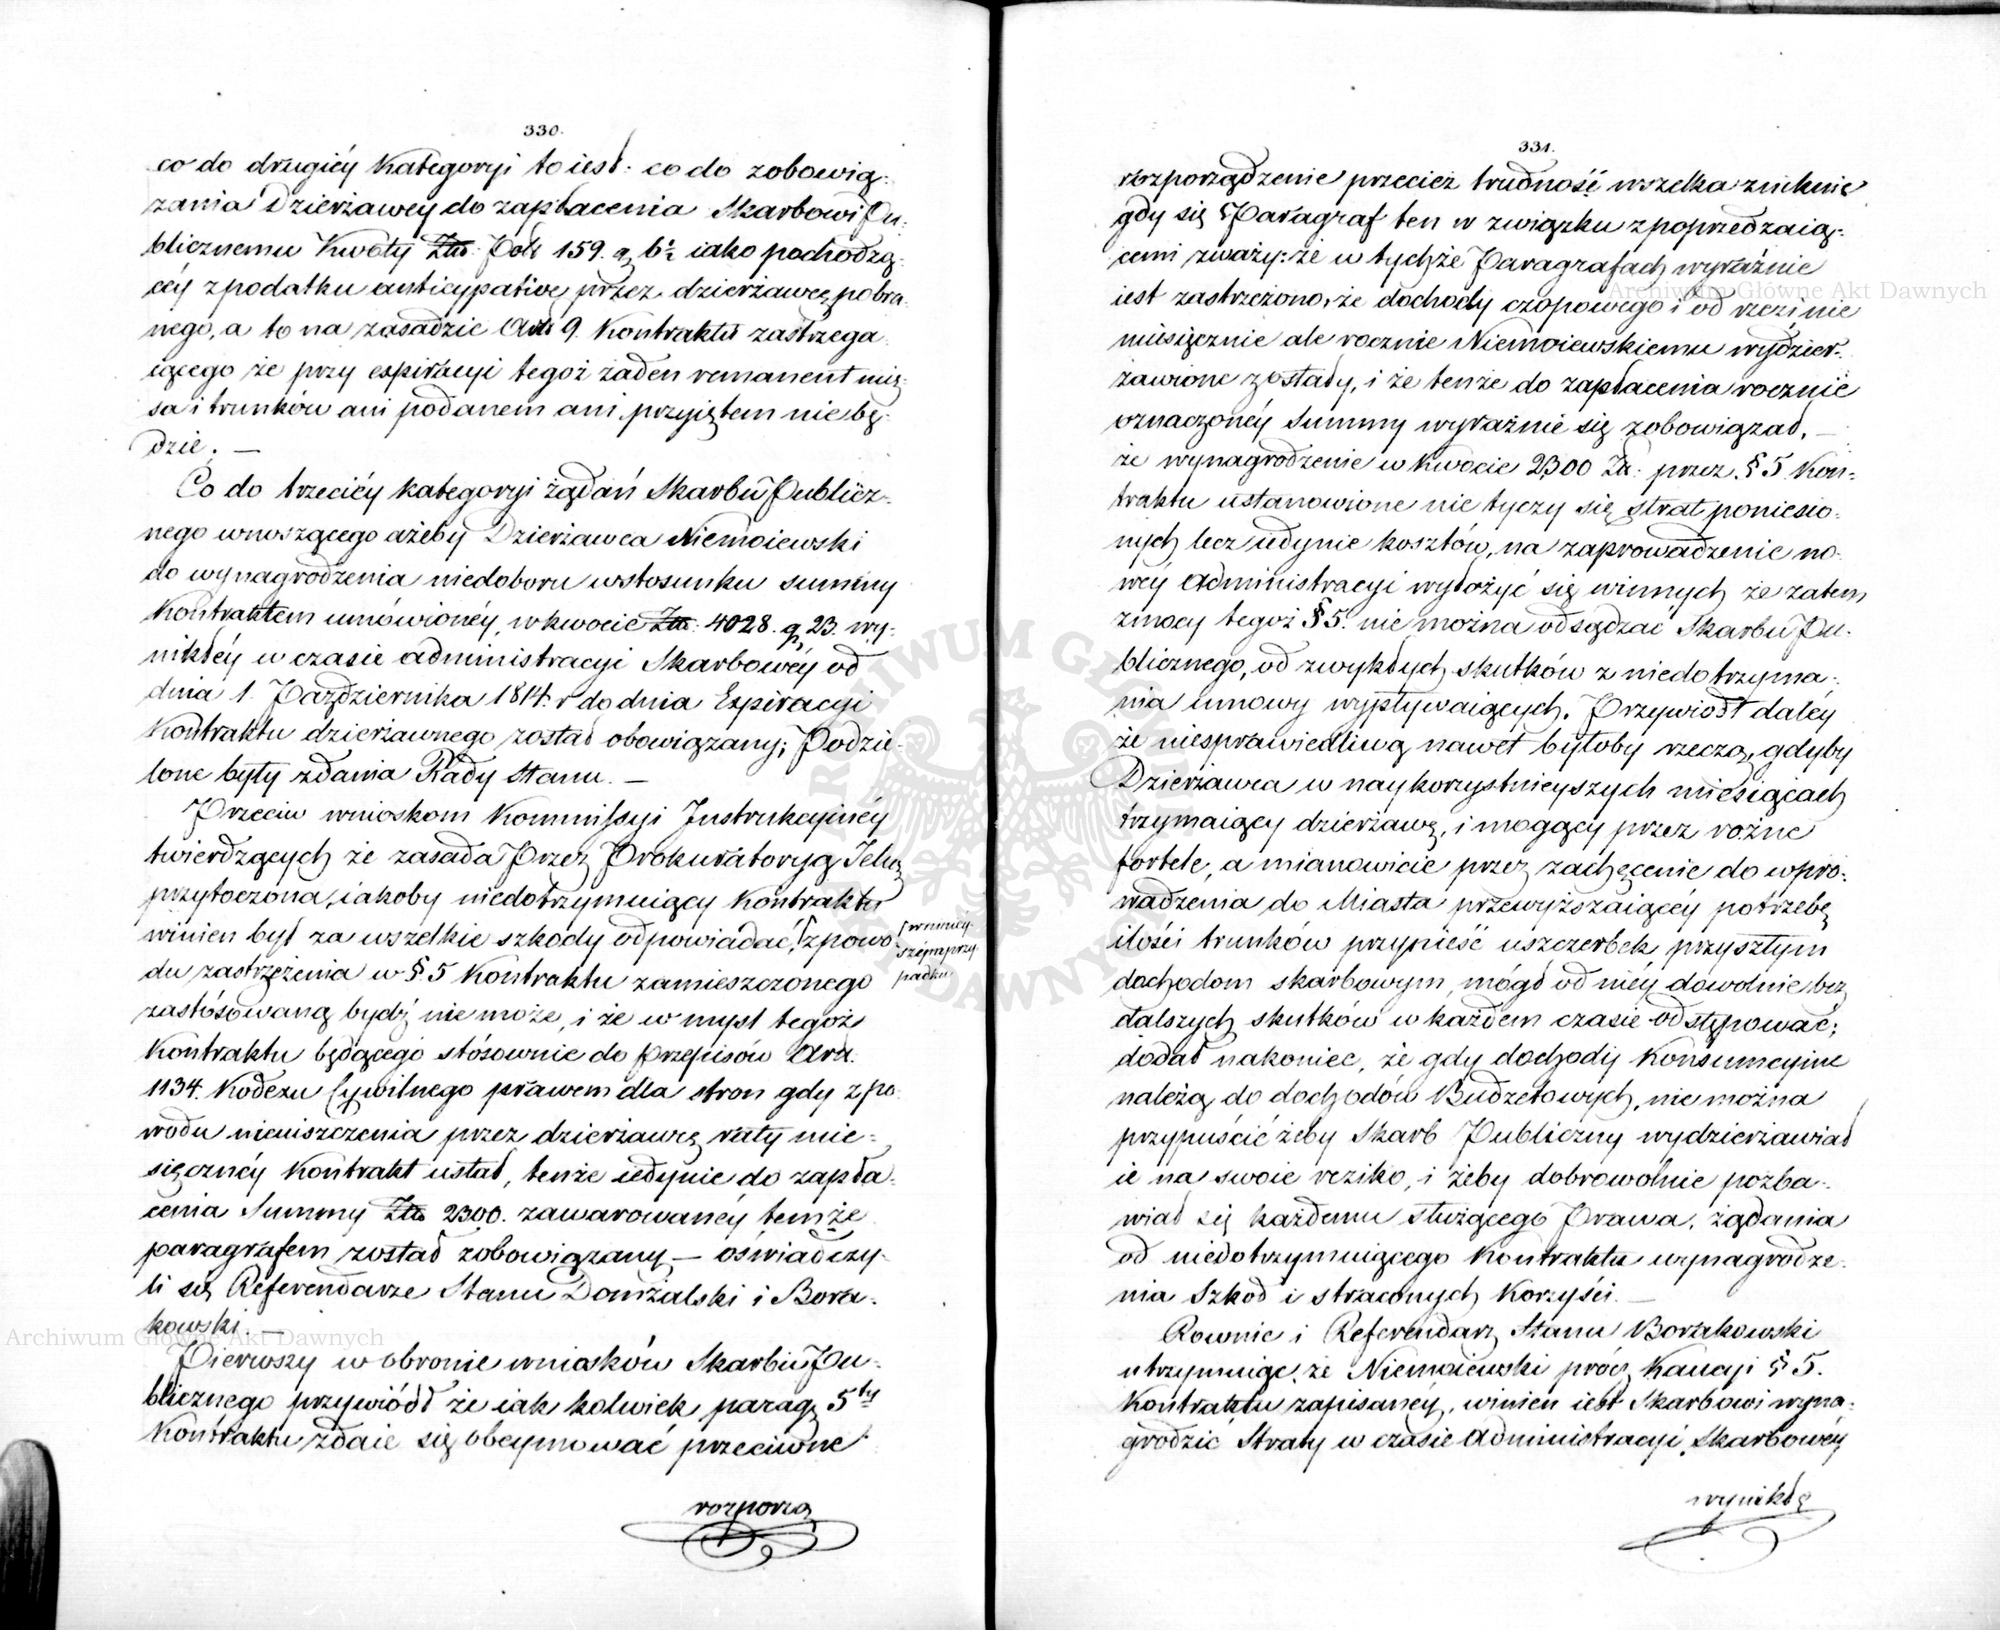 330.
co do drugiéy Kategoryi to iest: co do zobowią-
zania Dzierżawcy do zapłacenia Skarbowi Pu-
blicznemu Kwoty Złt. Pols 159. g. 6½ iako pochodzą-
céy z podatku anticypative przez dzierżawcę pobra-
nego, a to na zasadzie Art 9. Kontraktu zastrzega
iącego że przy espiracyi tegoż żaden remanent mię-
sa i trunków ani podanem ani przyiętem nie bę-
dzie. —
Co do trzeciéy kategoryi żądań Skarbu Publicz-
nego wnoszącego ażeby Dzierżawca Niemoiewski
do wynagrodzenia niedoboru w stosunku summy
Kontraktem umówionéy, w kwocie Złt. 4028. g. 23. wy-
nikłéy w czasie administracyi Skarbowéy od
dnia 1. Października 1814. r do dnia Expiracyi
Kontraktu dzierżawnego został obowiązany; Podzie-
lone były zdania Rady Stanu. —
Przeciw wnioskom Kommissyi Instrukcyinéy
twierdzących że zasada Przez Prokuratoryą Jelną
przytoczona, iakoby niedotrzymuiący Kontraktu
winien był za wszelkie szkody odpowiadać, z powo-
w ninieysz
szém przy-
padku
du zastrzeżenia w § 5 Kontraktu zamieszczonego
zastósowaną bydź nie może, i że w myśl tegoż
Kontraktu będącego stósownie do przepisów Ara.
1134. Kodexu Cywilnego prawem dla stron gdy z po-
wodu nieuiszczenia przez dzierżawcę raty mie-
sięcznéy Kontrakt ustał, tenże iedynie do zapła-
cenia Summy Złt. 2300. zawarowanéy temże
paragrafem został zobowiązany — oświadczy-
li się Referendarze Stanu Domżalski i Borza-
kowski. —
Pierwszy w obronie wniosków Skarbu Pu-
blicznego przywiódł że iak kolwiek parag. 5ty
Kontraktu zdaie się obeymować przeciwne
rozporzą
331.
rozporządzenie przecież trudność wszelka zniknie
gdy się Paragraf ten w związku z poprzedzaią-
cemi zważy: że w tychże Paragrafach wyraźnie
iest zastrzeżono, że dochody czopowego i od rzezi nie
miesięcznie ale rocznie Niemoiewskiemu wydzier-
żawione zostały, i że tenże do zapłacenia rocznie
oznaczonéy Summy wyraźnie się zobowiązał, —
że wynagrodzenie w Kwocie 2300 Zł. przez § 5 Kon-
traktu ustanowione nie tyczy się strat poniesio-
nych lecz iedynie kosztów, na zaprowadzenie no-
wéy Administracyi wyłożyć się winnych że zatem
z mocy tegoż § 5. nie można odsądzać Skarbu Pu-
blicznego, od zwykłych skutków z niedotrzyma-
nia umowy wypływaiących. Przywiódł daléy
że niesprawiedliwą nawet byłoby rzeczą, gdyby
Dzierżawca w naykorzystnieyszych miesiącach
trzymaiący dzierżawę, i mogący przez rożne
fortele, a mianowicie przez zachęcenie do wpro-
wadzenia do Miasta przewyższaiącéy potrzebę
ilości trunków przynieść uszczerbek przyszłym
dochodom skarbowym, mógł od niéy dowolnie bez
dalszych skutków w każdem czasie odstępować;
dodał nakoniec, że gdy dochody Konsumcyine
należą do dochodów Budżetowych, nie można
przypuścić żeby Skarb Publiczny wydzierżawiał
ie na swoie reziko, i żeby dobrowolnie pozba-
wiał się każdemu służącego Prawa, żądania
od niedotrzymuiącego Kontraktu wynagrodze-
nia Szkód i straconych Korzyści. —
Rownie i Referendarz Stanu Borzakowski
utrzymuiąc, że Niemoiewski prócz Kaucyi § 5.
Kontraktu zapisanéy, winien iest Skarbowi wyna-
grodzić Straty w czasie Administracyi Skarbowéy
wynikłe
Archiwum Główne Akt Dawnych
Archiwum Główne Akt Dawnych
ARCHIWUM GŁÓWNE AKT DAWNYCH